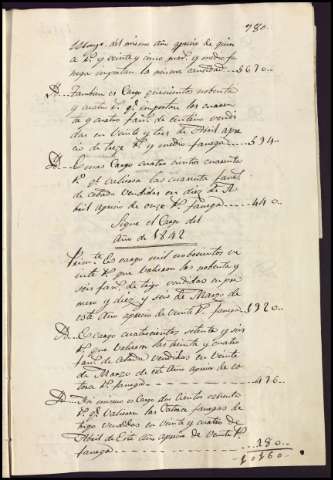 780.
Marzo, del mismo año aprecio de quin
ce r.s y veinte y cinco mar.s y medio fa
nega importan la misma cantidad ...$670..
D. Tambien es Cargo quinientos noventa
y cuatro r.s q.e importan los cuaren
ta y cuatro fan.s de centeno vendi
das en Veinte y tres de Abril apre
cio de trece r.s y medio fanega ..$594..
D. Es mas Cargo cuatro cientos cuarenta
r.s q.e valieron las cuarenta fan.s
de cebada vendidas en diez de A
bril aprecio de once r.s fanega ..440..
Sigue el Cargo del
Año de 1842
Prim.te Es cargo mil nobecientos ve
inte r.s que valieron las nobenta y
seis fan.s de trigo vendidas en pri
mero y diez y seis de Marzo de
este Año aprecio de veinte r.s fanega 1920..
D. Es cargo cuatrocientos setenta y seis
r.s que valieron las treinta y cuatro
fan.s de cebada vendidas en veinte
de Marzo de este Año aprecio de ca
torce r.s fanega ..476..
D. Asi mismo es Cargo dos cientos ochenta
r.s q.e valieron las Catorce fanegas de
trigo vendidas en veinte y cuatro de
Abril de Este Año aprecio de veinte r.s
fanega ..280..